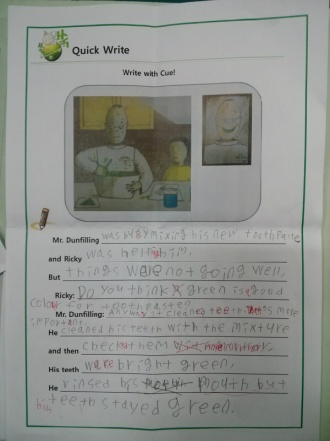 Quick Write
Write with Cue!
Mr. Dunfilling was mixing his new toothpaste
and Ricky was helping him.
But things were not going well,
Ricky: Do you think green is good
color for toothpaste?
Mr. Dunfilling: Anyway it cleans teeth. That's more
important.
He cleaned his teeth with the mixture
and then checked them
His teeth were bright green,
He rinsed his mouth but
his teeth stayed green.